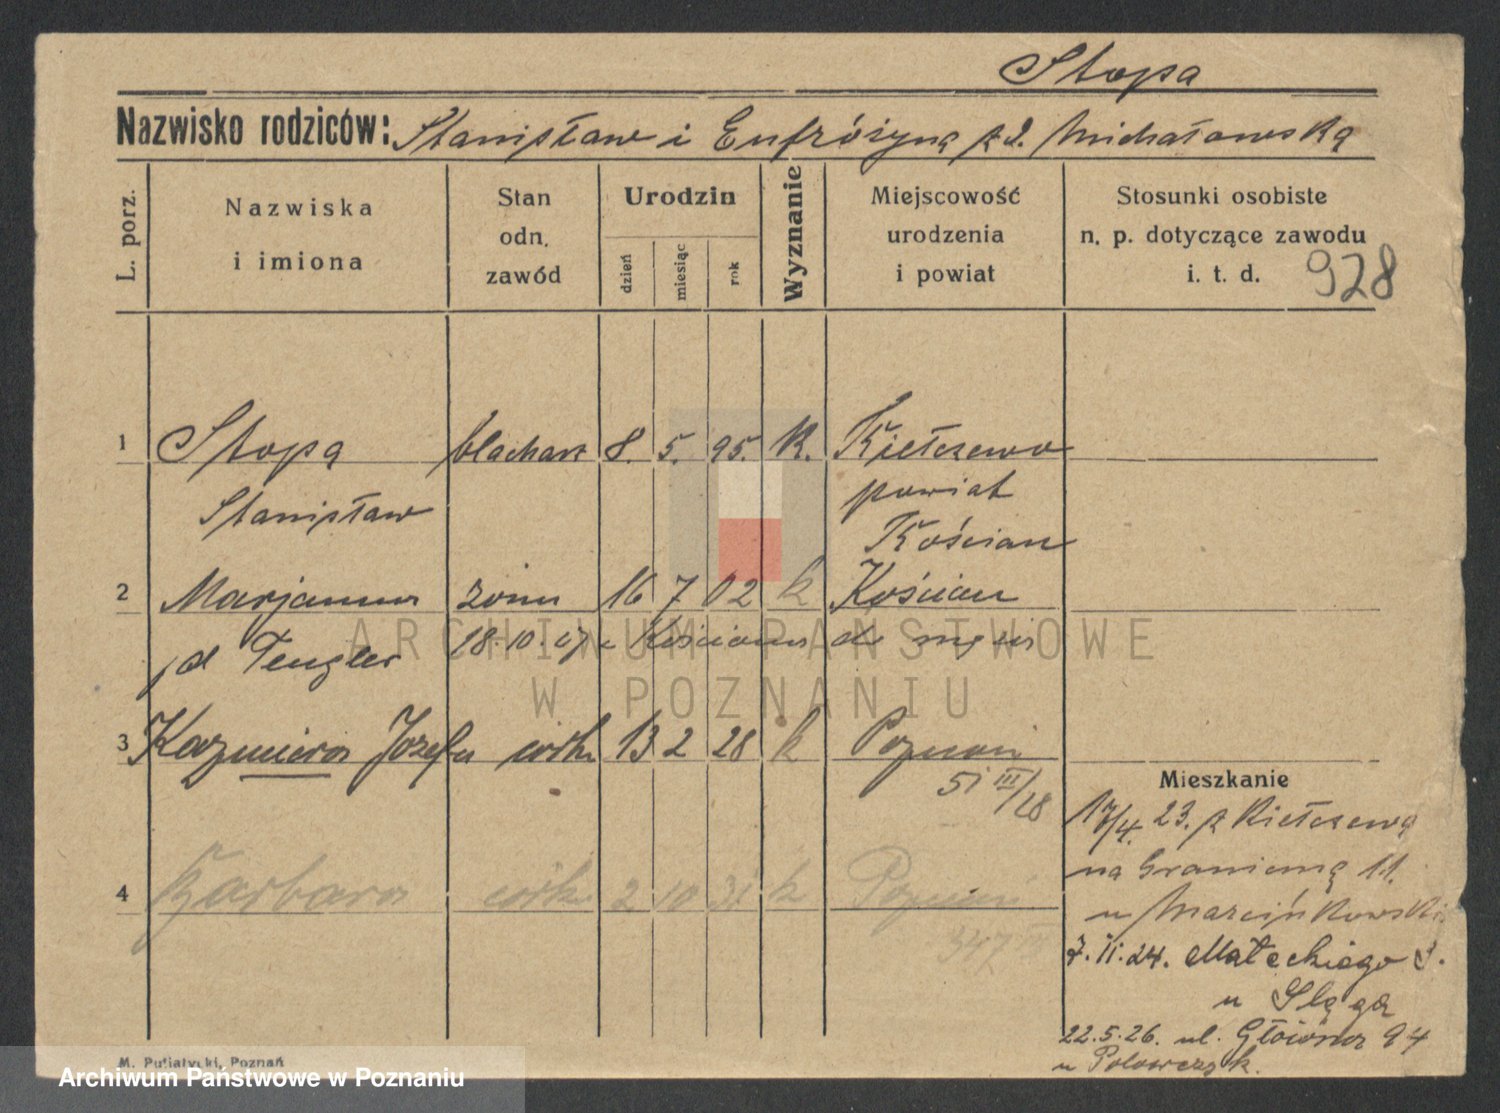 Stopa
Nazwisko rodziców: Stanisław i Eufrózyna z d. Michałowska
L. porz.
Nazwiska i imiona
Stan odn. zawód
Urodzin
dzień
miesiąc
rok
Wyznanie
Miejscowość urodzenia i powiat
Stosunki osobiste n. p. dotyczące zawodu i. t. d.
928
1 Stopa blacharz 8. 5. 95. K. Kiełczewo
Stanisław powiat
Kościan
2 Marjanna żona 16 7 02 k Kościan
d Tengler 18.10.27 z Kościana do męża
3 Kazimiera Józefa córka 13 2 28 k Poznań
51 III/28
Mieszkanie
17/4. 23. z Kiełczewa
na Graniczną 11.
u Marcinkowski
4 Barbara córka 2 10 31 k Poznań
347
7.11.24. Małeckiego
u Ślęga
22.5.26. ul. Główna 94
u
M. Putiatycki, Poznań
ARCHIWUM PAŃSTWOWE
W POZNANIU
Archiwum Państwowe w Poznaniu